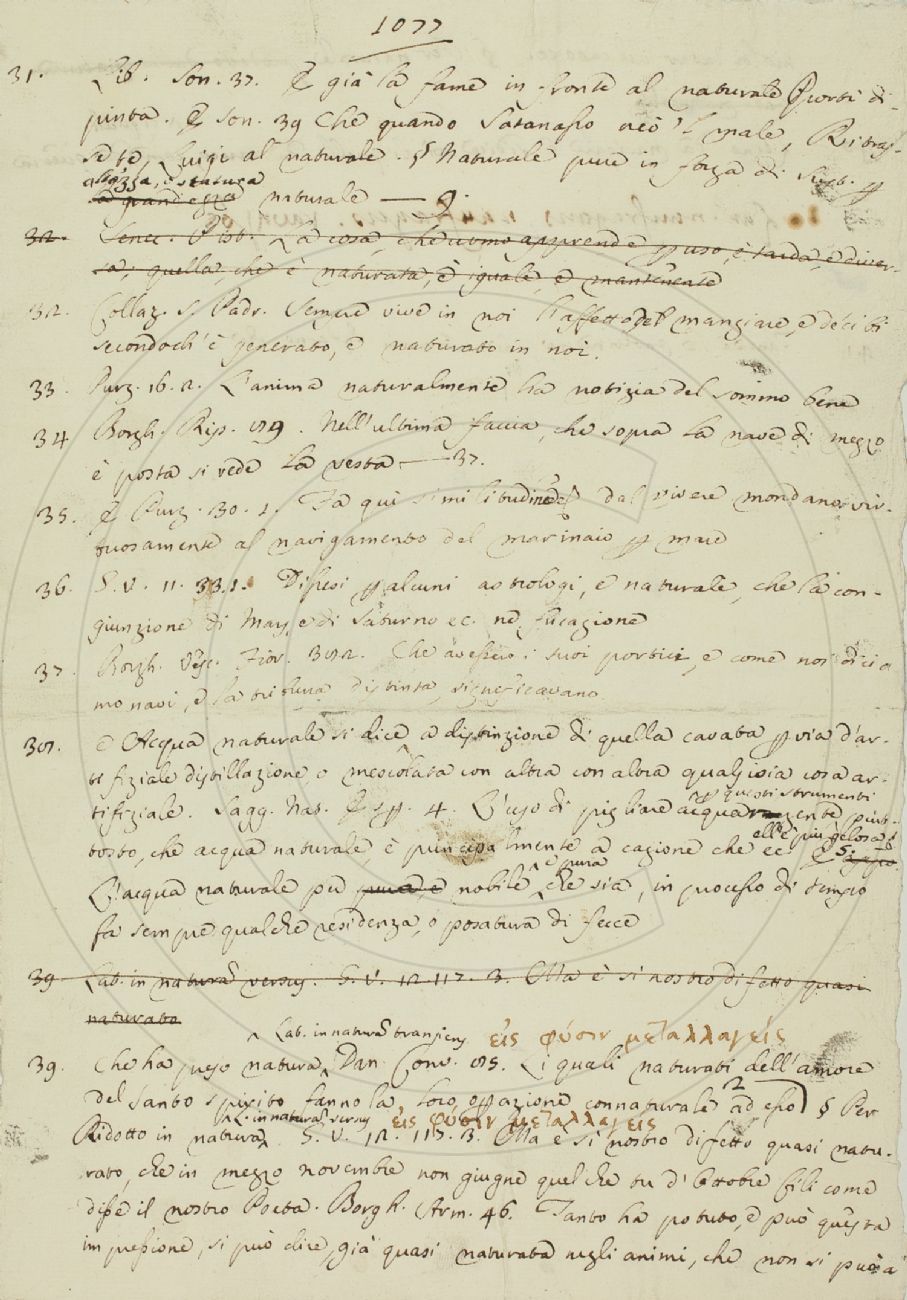 1077
31. Lib. Son. 37. E già la fame in fronte al naturale Porti di-
pinta. E Son. 39 Che quando Satanasso neò 'l male, Ritras-
se te, Luigi al naturale. § Naturale pure in forza di Sust. p
altezza, e statura
la grandezza naturale —
32. Cenn. Pitt. La cosa, che uomo apprende p uso, è tarda, e diver-
sa; quella, che è naturata, è iguale, e mantenente
32. Collaz. S. Padr. Sempre vive in noi l'affetto del mangiare, e de' cibi
secondoch' è generato, e naturato in noi.
33. Purg. 16. 2. L'anima naturalmente ha notizia del sommo bene
34 Borgh. Rip. 179. Nell'ultima faccia, che sopra la nave di mezzo
è posta si vede la vesta — 37.
35. E Purg. 30. 1. Fa qui similitudine dal vivere mondano vir-
tuosamente al navigamento del marinaio p mare
36. G. V. 11. 33. 1. Dissesi p alcuni astrologi, e naturale, che la con-
giunzione di Mars, e di Saturno ec. ne fu cagione
37. Borgh. Vesc. Fior. 372. Che avessero i suoi portici, e come noi dicia
mo navi, e la tribuna distinta, significavano
37. E Acqua naturale si dice a distinzione di quella cavata p via d'ar-
tifiziale distillazione o mescolata con altra con altra qualsisia cosa ar-
p questi strumenti
tifiziale. Sagg. Nat. Esp. 4. L'uso di pigliare acquarzente piut-
ell'è più gelosa
tosto, che acqua naturale, è principalmente a cagione che ec. E 5.
è pura
L'acqua naturale per pura, e nobile, che sia, in processo di tempo
fa sempre qualche residenza, o posatura di fecce
39. Lat. in naturã versus. G. V. 12. 117. 3. Ma è si nostro difetto quasi
naturato
^ Lat. in naturã transiens εἰς φύσιν μεταλλαγείς
39. Che ha preso natura, Dan. Conv. 175. Li quali naturati dell'amore
del Santo spirito fanno la loro operazione connaturale ad esso § Per
L. in naturã versus εἰς φύσιν μεταλλαγείς
Ridotto in natura, G. V. 12. 117. 3. Ma è si nostro difetto quasi natu-
rato, che in mezzo novembre non giugne quel che tu d'Ottobre fili come
disse il nostro Poeta. Borgh. Arm. 46. Tanto ha potuto, e può questa
impressione, si può dire, già quasi naturata negli animi, che non si può a